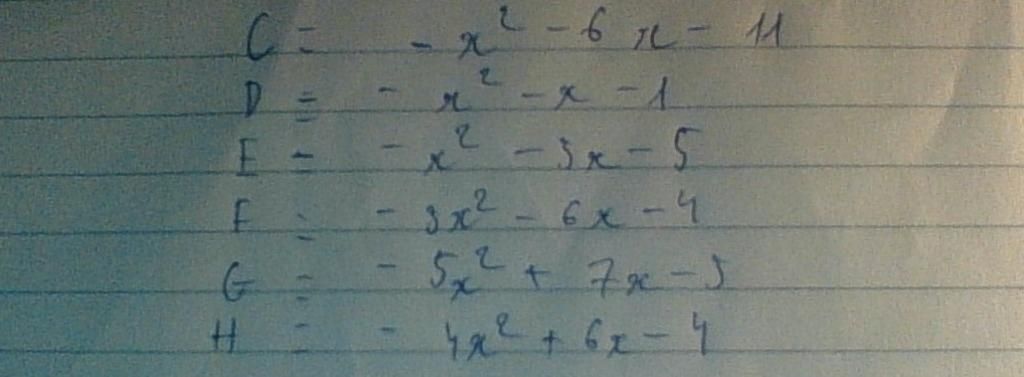 C = - x² - 6x - 11
D = - x² - x - 1
E = - x² - 3x - 5
F = - 3x² - 6x - 4
G = - 5x² + 7x - 3
H = - 4x² + 6x - 4